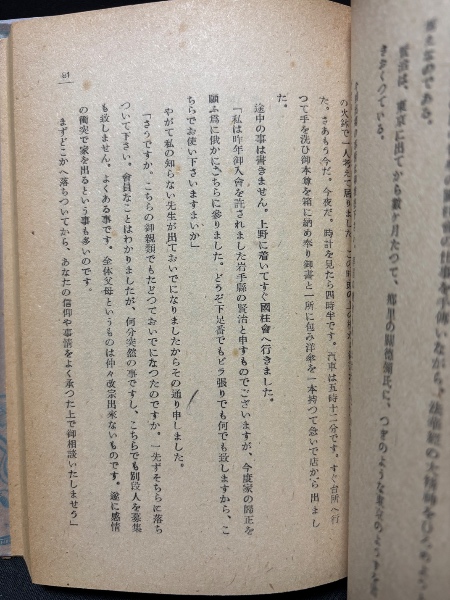 國柱會の仕事を手傳いながら、法華經の大精神をひろめよう
のである。
賢治は、東京に出てから數ヶ月たつて、郷里の關徳彌氏に、つぎのような家出のようすを
書きおくつている。
の火鉢で一人考へて居りました。
た。さあもう今だ。今夜だ。時計を見たら四時半です。汽車は五時十二分です。すぐ台所へ行
つて手を洗ひ御本尊を箱に納め奉り御書と一所に包み洋傘を一本持つて急いで店から出まし
た。
途中の事は書きません。上野に着いてすぐ國柱會へ行きました。
「私は昨年御入會を許されました岩手縣の賢治と申すものでございますが、今度家の歸正を
願ふ爲に俄かにこちらに參りました。どうぞ下足番でもビラ張りでも何でも致しますから、こ
ちらでお使い下さいますまいか」
やがて私の知らない先生が出ておいでになりましたからその通り申しました。
「さうですか、こちらの御親類でもたどつておいでになつたのですか。一先ずそちらに落ち
ついて下さい。會員なことはわかりましたが、何分突然の事ですし、こちらでも別段人を募集
も致しません。よくある事です。全体父母というものは仲々改宗出來ないものです。遂に感情
の衝突で家を出るという事も多いのです。
まずどこかへ落ちついてから、あなたの信仰や事情をよく承つた上で御相談いたしませう」
61